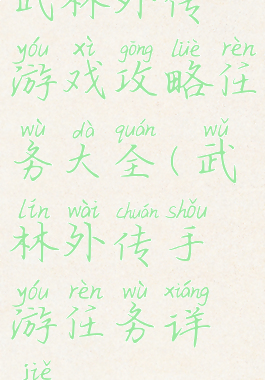 武林外传
yóu xì gōng lüè rèn
游戏攻略任
wù dà quán wǔ
务大全(武
lín wài chuán shǒu
林外传手
yóu rèn wù xiáng
游任务详
jiě